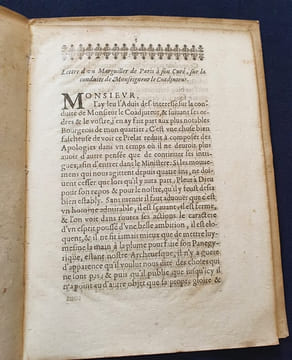 Lettre d'vn Marguiller de Paris à son Curé, sur la
conduite de Monseigneur le Coadjuteur.
MONSIEVR,
I'ay leu l'Aduis des-interessé sur la con-
duite de Monsieur le Coadjuteur, & suiuant vos or-
dres & le vostre, i'en ay fait part aux plus notables
Bourgeois de mon quartier. C'est vne chose bien
fascheuse de voir ce Prelat reduit à composer des
Apologies dans vn temps où il ne deuroit plus
auoir d'autre pensée que de continuer ses intri-
gues, afin d'entrer dans le Ministere. Si les mouue-
mens qui nous agitent depuis quatre ans, ne doiuent
cesser que lors qu'il y aura part, Pleust à Dieu
pour son repos & pour le nostre, qu'il y fust desia
bien estably. Sans mentir il faut aduoüer que c'est
vn homme admirable, il est sçauant, il est ferme,
& l'on voit dans toutes ses actions le caractere
d'vn esprit poussé d'vne belle ambition, il est eloquent,
& il ne fit iamais mieux que de mettre luy-
mesme la main à la plume pour faire son Panegy-
rique, estant nostre Archeuesque, il n'y a guere
d'apparence qu'il voulut nous dire des choses qui
ne sont pas, & puis qu'il publie que iusqu'icy il
n'a point eu d'autre objet que sa propre gloire &